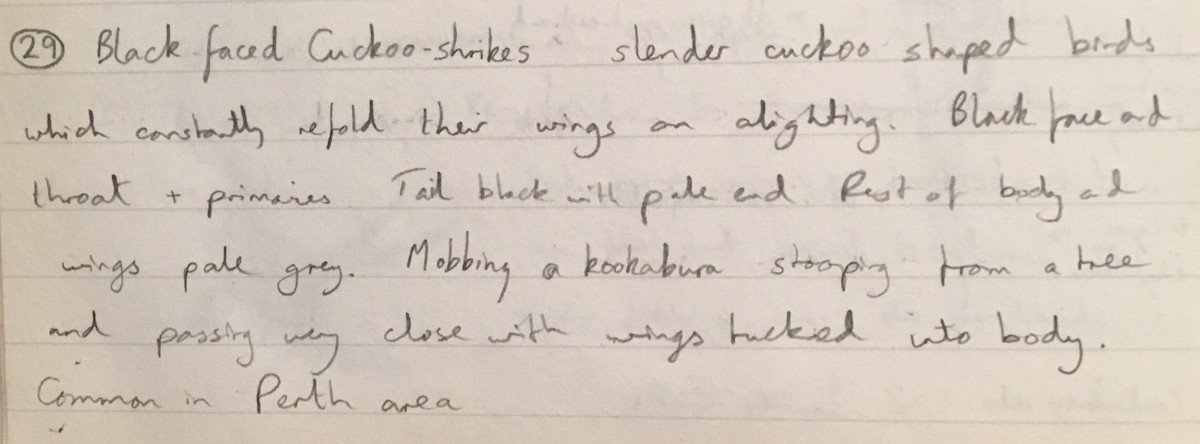 29 Black faced Cuckoo-shrikes slender cuckoo shaped birds
which constantly refold their wings on alighting. Black face and
throat + primaries Tail black with pale end Rest of body and
wings pale grey. Mobbing a kookabura stooping from a tree
and passing very close with wings tucked into body.
Common in Perth area